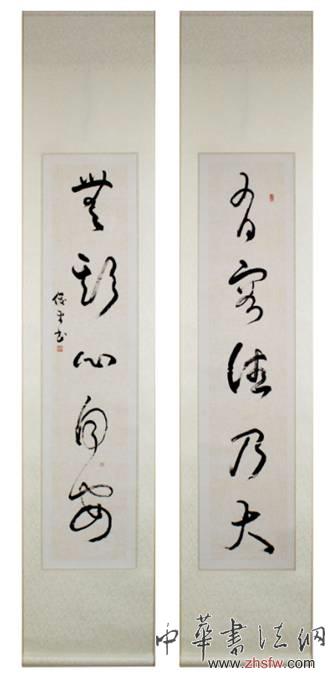 有容德乃大
無欺心自安
中華書法網
www.zhsfw.com